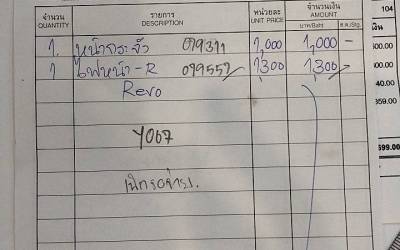 จำนวน QUANTITY รายการ DESCRIPTION หน่วยละ UNIT PRICE จำนวนเงิน AMOUNT
บาท/Baht ส.ต./Stg.
1. หน้ากระจัง 079311 1,000 1,000 -
1 ไฟหน้า-R 079557 1300 1,300
Revo
Y067
เบิกรอจ่าย.
104
600.00
00.00
359.00
699.00